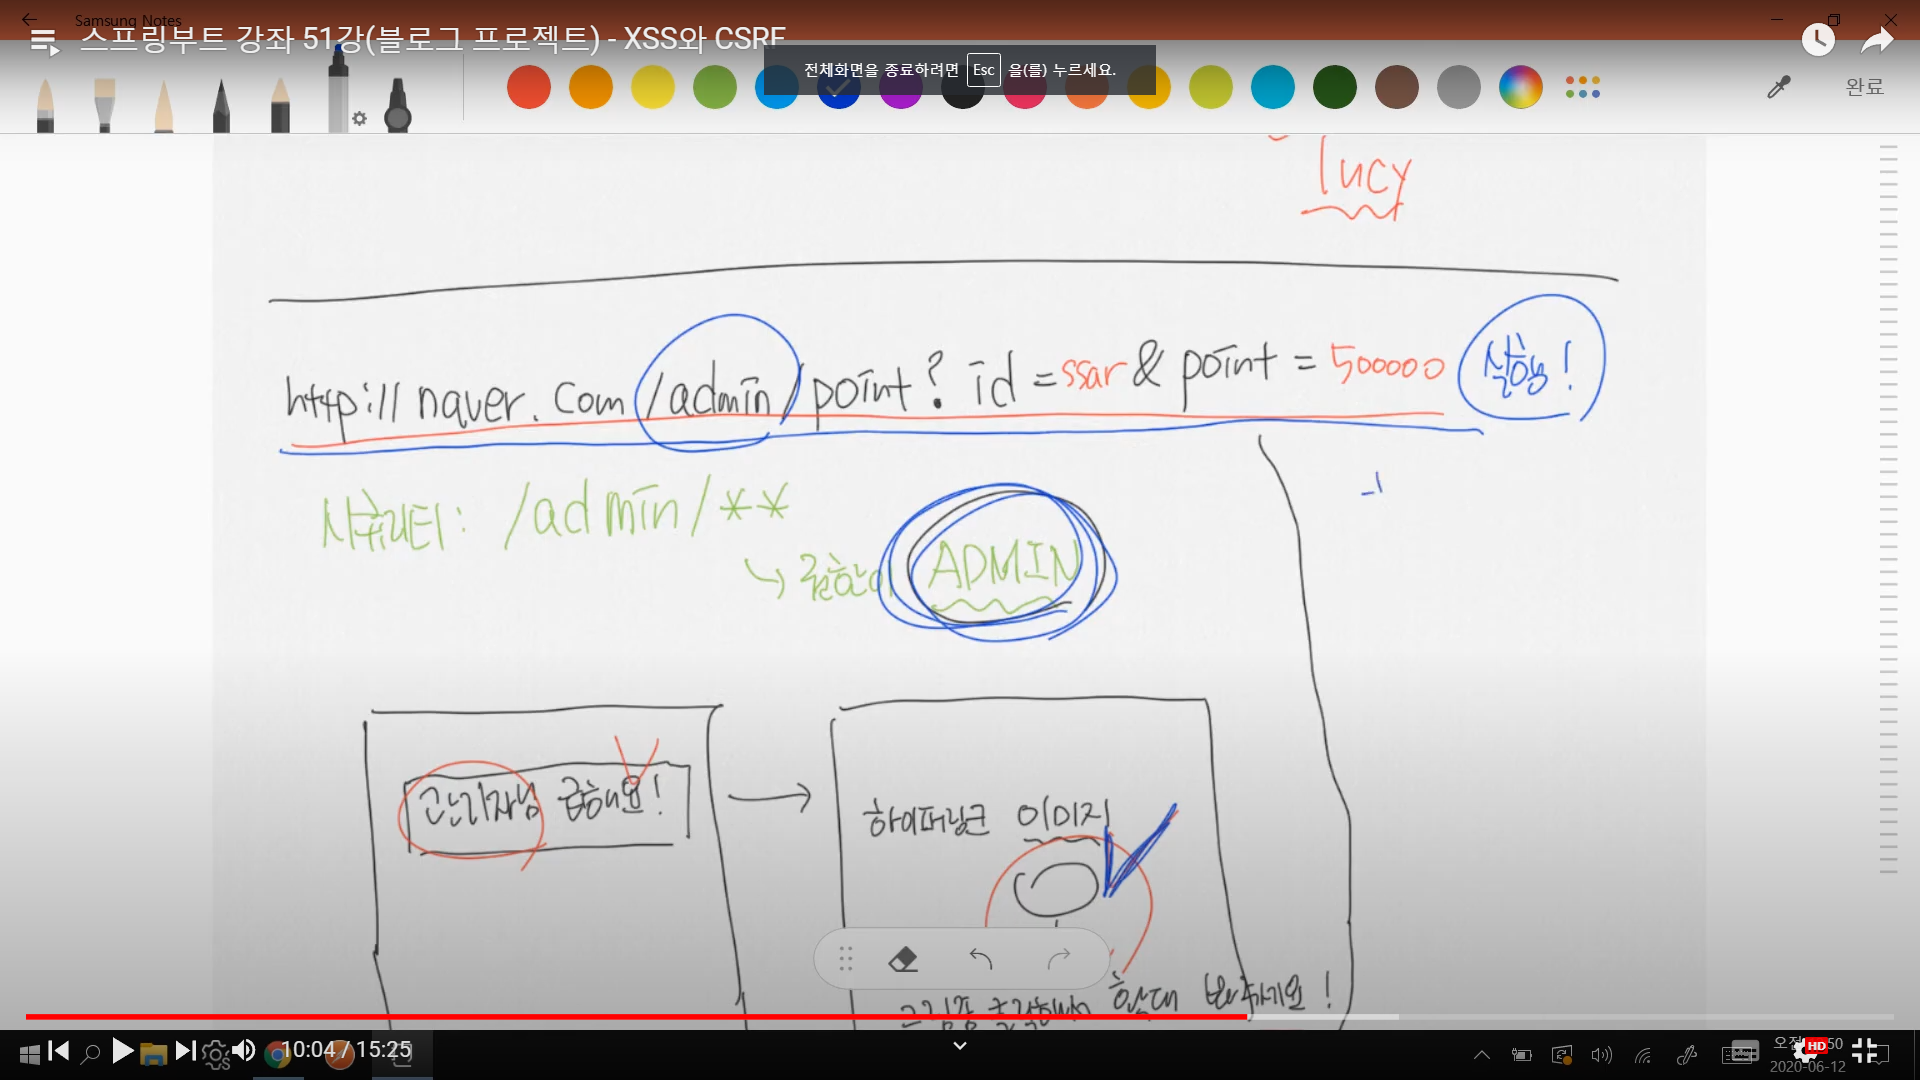 Samsung Notes
스프링부트 강좌 51강(블로그 프로젝트) - XSS와 CSRF
전체화면을 종료하려면 Esc 을(를) 누르세요.
완료
lucy
http://naver.com/admin/point? id=ssar & point = 500000 실행!
시큐리티: /admin/**
↳ 권한이 ADMIN
관리자님 급해요!
하이퍼링크 이미지
그림좀
10:04 / 15:25
HD
오전 50
2020-06-12